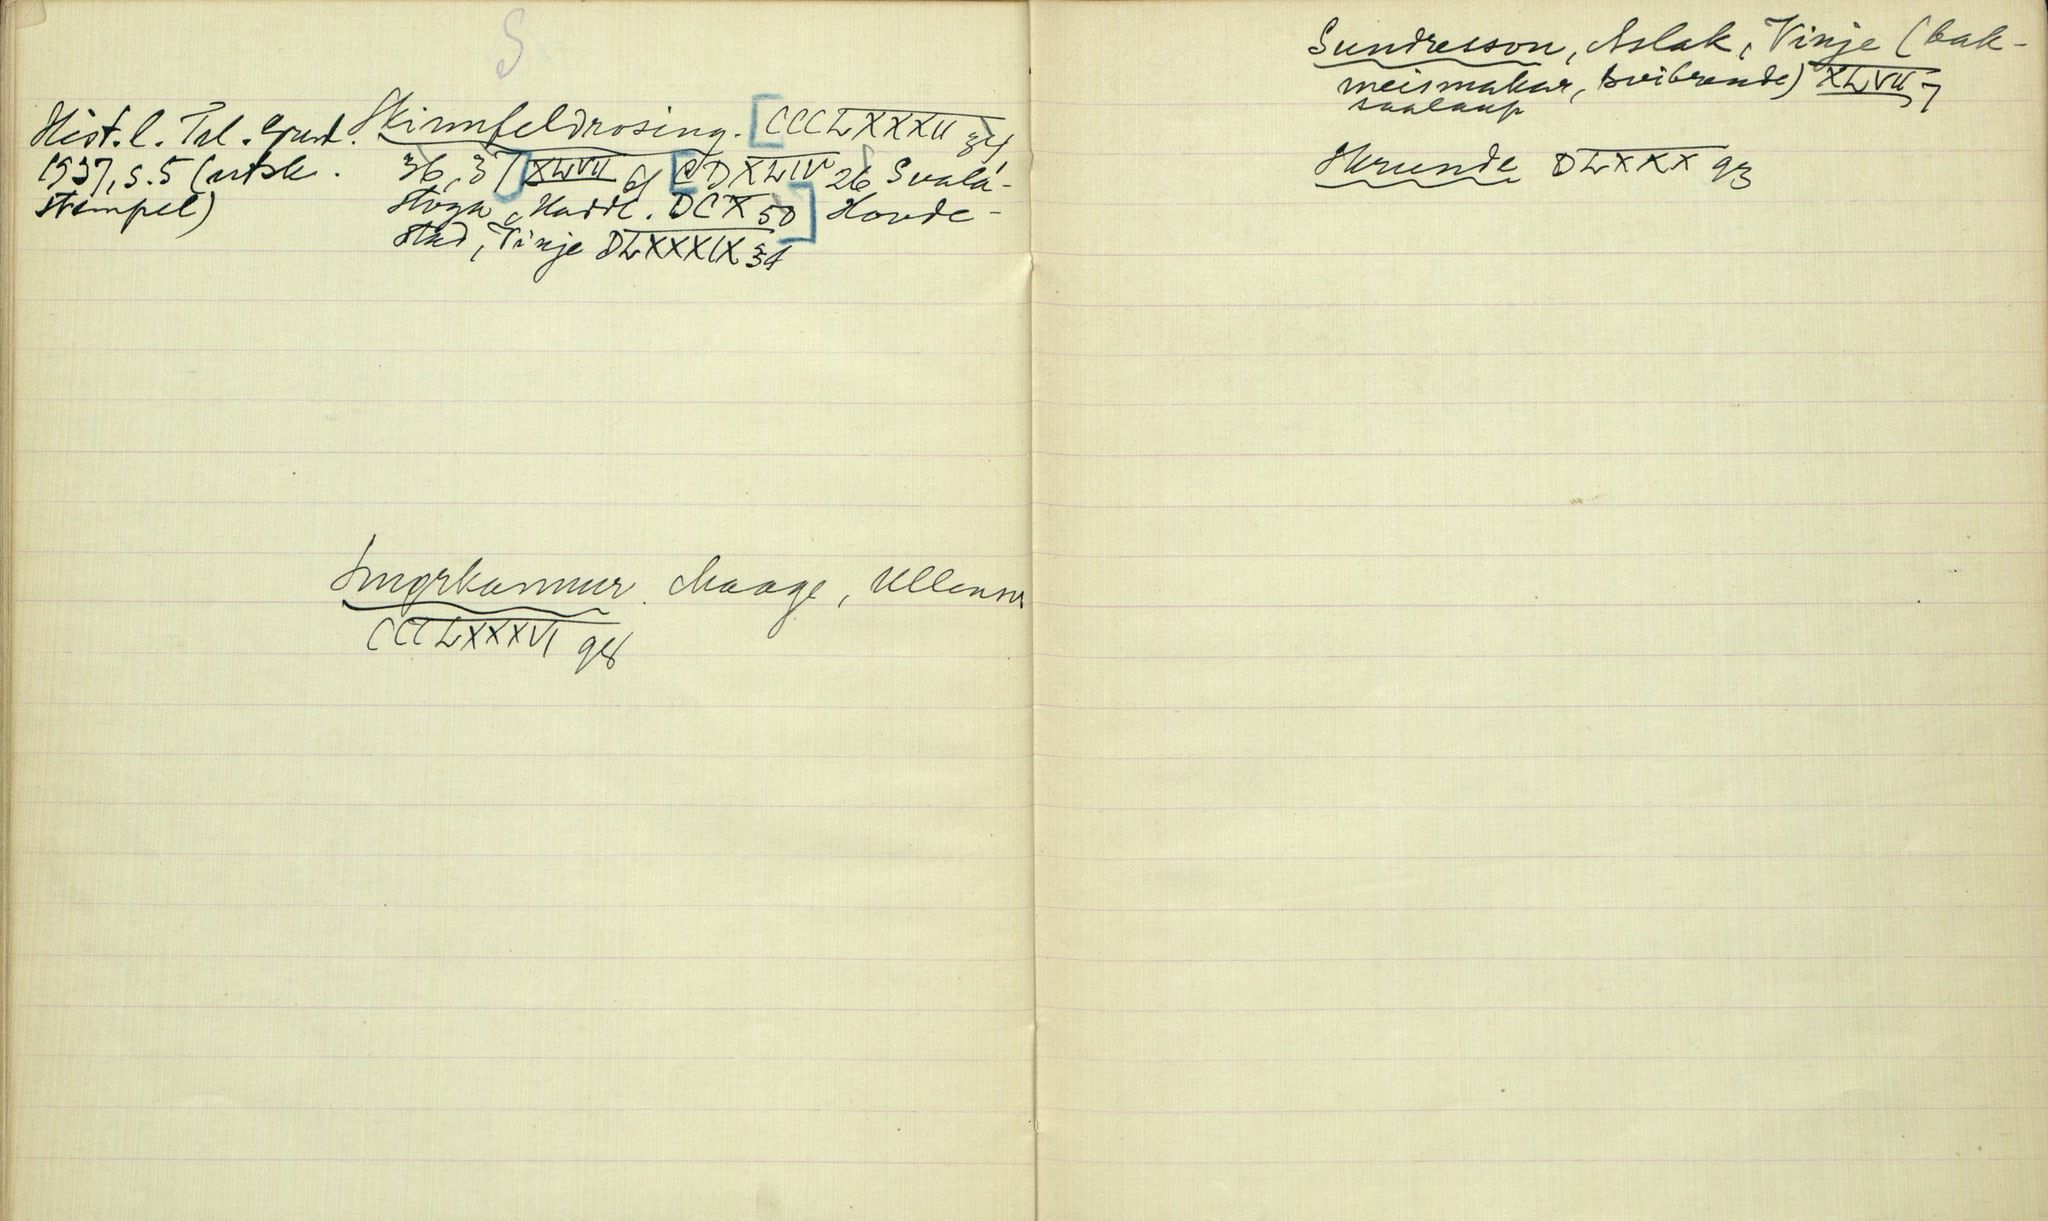 S
Hist. l. Tel. Grenl.
1937, s. 5 (utsk.
stempel)
Skinnfeldrosing. [CCCLXXXII 34
36, 37] XLVII 61 [CDXLIV 26 Svalá-
stoga, Hadde. DCX 50] Hovde-
stad, Vinje DLXXXIX 34
Smørkannur. Maage, Ullensv
CCCLXXXVI 98
Sundresson, Aslak, Vinje (bak-
meismakar, svibrende) XLVII 7
saalaup
Skrunde DLXXX 93